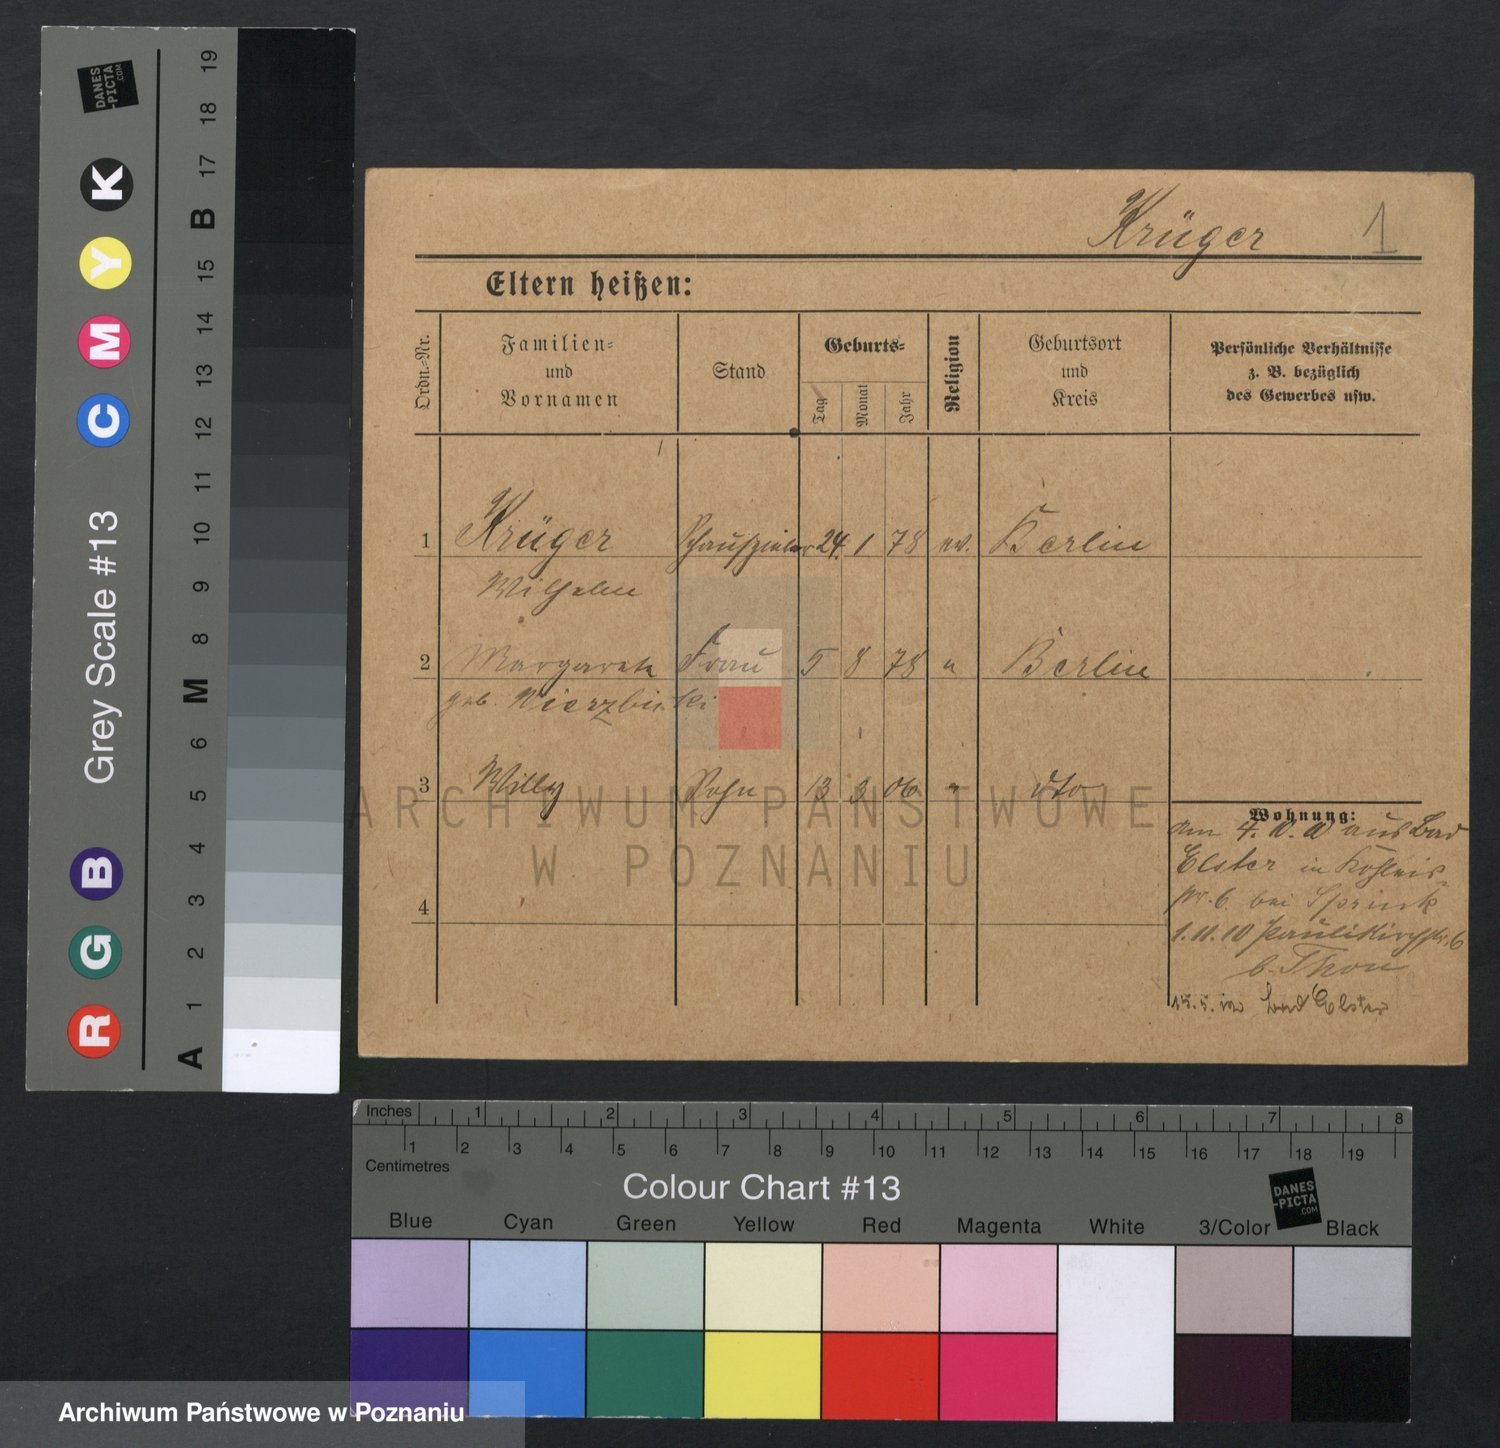 Krüger 1
Eltern heißen:
Ordn.-Nr.
Familien- und Vornamen
Stand
Geburts-
Tag
Monat
Jahr
Religion
Geburtsort und Kreis
Persönliche Verhältnisse
z. B. bezüglich
des Gewerbes usw.
1 Krüger Schauspieler 24. 1 78 ev. Berlin
Wilhelm
2 Margarete Frau 5 8 78 " Berlin
geb. Wierzbicki
3 Willy Sohn 13 3 06 " dto
4
Wohnung:
am 4. 10. 10 aus Bad
Elster in
str. 6 bei
1.11.10 Paulikirchstr. 6
b. Thon
15.5. Bad Elster
ARCHIWUM PAŃSTWOWE
W POZNANIU
DANES
-PICTA
.COM
Grey Scale #13
R G B C M Y K
A 1 2 3 4 5 6 M 8 9 10 11 12 13 14 15 B 17 18 19
Inches 1 2 3 4 5 6 7 8
1 2 3 4 5 6 7 8 9 10 11 12 13 14 15 16 17 18 19
Centimetres
Colour Chart #13
DANES
-PICTA
.COM
Blue Cyan Green Yellow Red Magenta White 3/Color Black
Archiwum Państwowe w Poznaniu